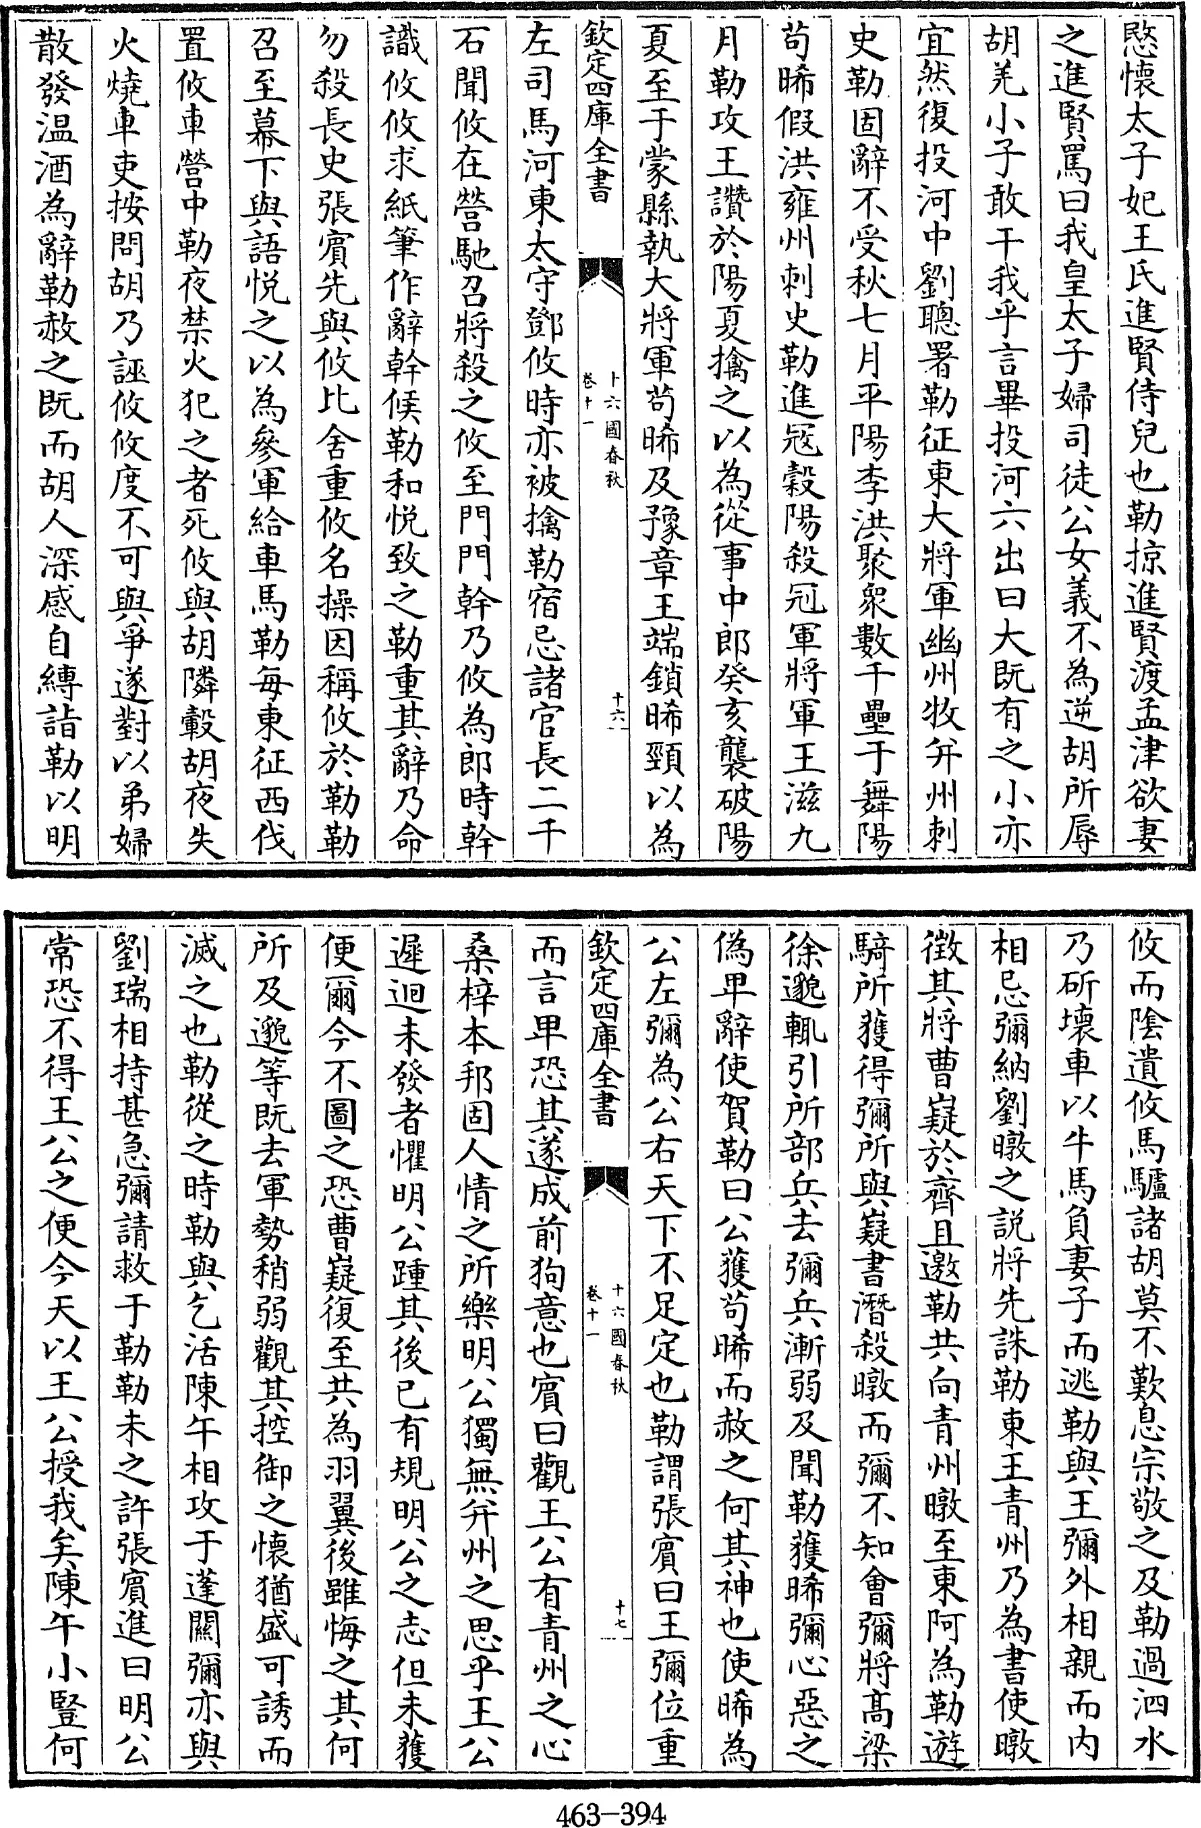 愍懷太子妃王氏進賢侍兒也勒掠進賢渡孟津欲妻
之進賢罵曰我皇太子婦司徒公女義不為逆胡所辱
胡羌小子敢干我乎言畢投河六出曰大既有之小亦
宜然復投河中劉聰署勒征東大將軍幽州牧幷州刺
史勒固辭不受秋七月平陽李洪聚衆數千壘于舞陽
苟晞假洪雍州刺史勒進冦穀陽殺冠軍將軍王滋九
月勒攻王讚於陽夏擒之以為從事中郎癸亥襲破陽
夏至于蒙縣執大將軍苟晞及豫章王端鎖晞頸以為
欽定四庫全書
十六國春秋
卷十一
十六
左司馬河東太守鄧攸時亦被擒勒宿忌諸官長二千
石聞攸在營馳召將殺之攸至門門幹乃攸為郎時幹
識攸攸求紙筆作辭幹候勒和悅致之勒重其辭乃命
勿殺長史張賓先與攸比舍重攸名操因稱攸於勒勒
召至幕下與語悅之以為參軍給車馬勒每東征西伐
置攸車營中勒夜禁火犯之者死攸與胡隣轂胡夜失
火燒車吏按問胡乃誣攸攸度不可與爭遂對以弟婦
散發温酒為辭勒赦之既而胡人深感自縳詣勒以明
攸而陰遺攸馬驢諸胡莫不歎息宗敬之及勒過泗水
乃斫壞車以牛馬負妻子而逃勒與王彌外相親而内
相忌彌納劉暾之説將先誅勒東王青州乃為書使暾
徴其將曹嶷於齊且邀勒共向青州暾至東阿為勒遊
騎所獲得彌所與嶷書潛殺暾而彌不知會彌將髙梁
徐邈輒引所部兵去彌兵漸弱及聞勒獲晞彌心惡之
偽卑辭使賀勒曰公獲苟晞而赦之何其神也使晞為
公左彌為公右天下不足定也勒謂張賓曰王彌位重
欽定四庫全書
十六國春秋
卷十一
十七
而言卑恐其遂成前狗意也賓曰觀王公有青州之心
桑梓本邦固人情之所樂明公獨無幷州之思乎王公
遲迴未發者懼明公踵其後已有規明公之志但未獲
便爾今不圖之恐曹嶷復至共為羽翼後雖悔之其何
所及邈等既去軍勢稍弱觀其控御之懷猶盛可誘而
滅之也勒從之時勒與乞活陳午相攻于蓬關彌亦與
劉瑞相持甚急彌請救于勒勒未之許張賓進曰明公
常恐不得王公之便今天以王公授我矣陳午小豎何
463-394